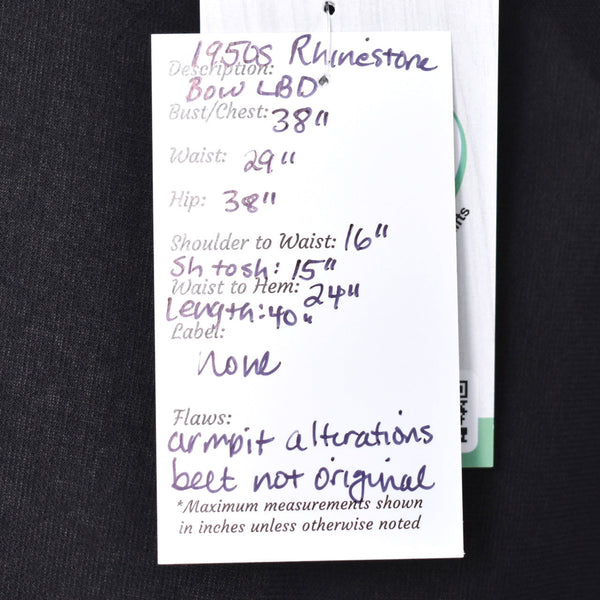 Description: 1950s Rhinestone
Bow LBD
Bust/Chest: 38"
Waist: 29"
Hip: 38"
Shoulder to Waist: 16"
Sh to sh: 15"
Waist to Hem: 24"
Length: 40"
Label:
none
Flaws:
armpit alterations
belt not original
*Maximum measurements shown
in inches unless otherwise noted